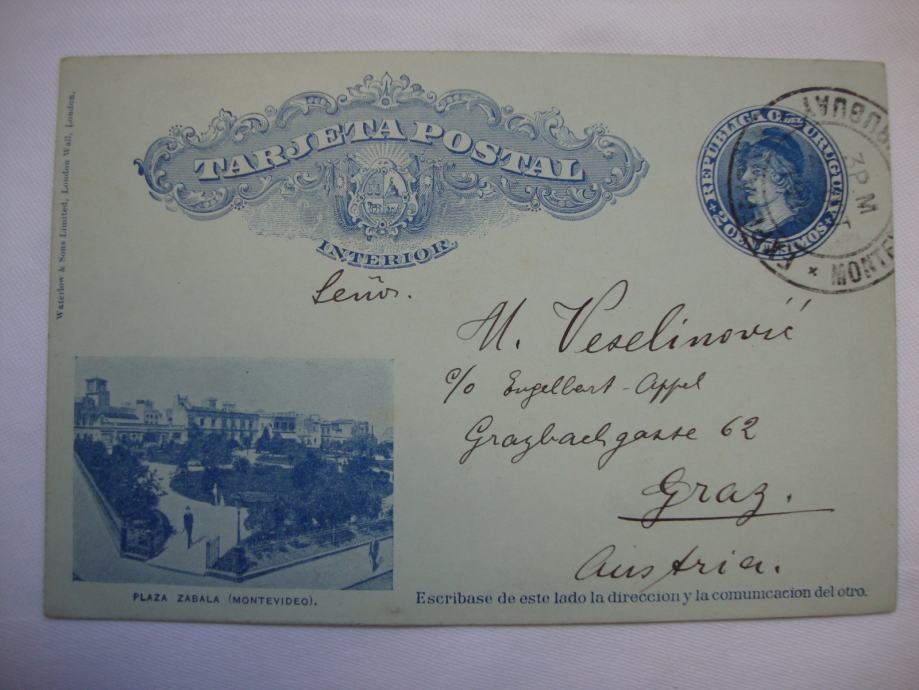 Waterlow & Sons Limited, London Wall, London.
TARJETA POSTAL
INTERIOR
REPUBLICA O. DEL URUGUAY
MONTE
3 P M
Señor.
M. Veselinović
c/o Engelbert-Appel
Grazbachgasse 62
Graz.
Austria.
PLAZA ZABALA (MONTEVIDEO).
Escribase de este lado la direccion y la comunicacion del otro.